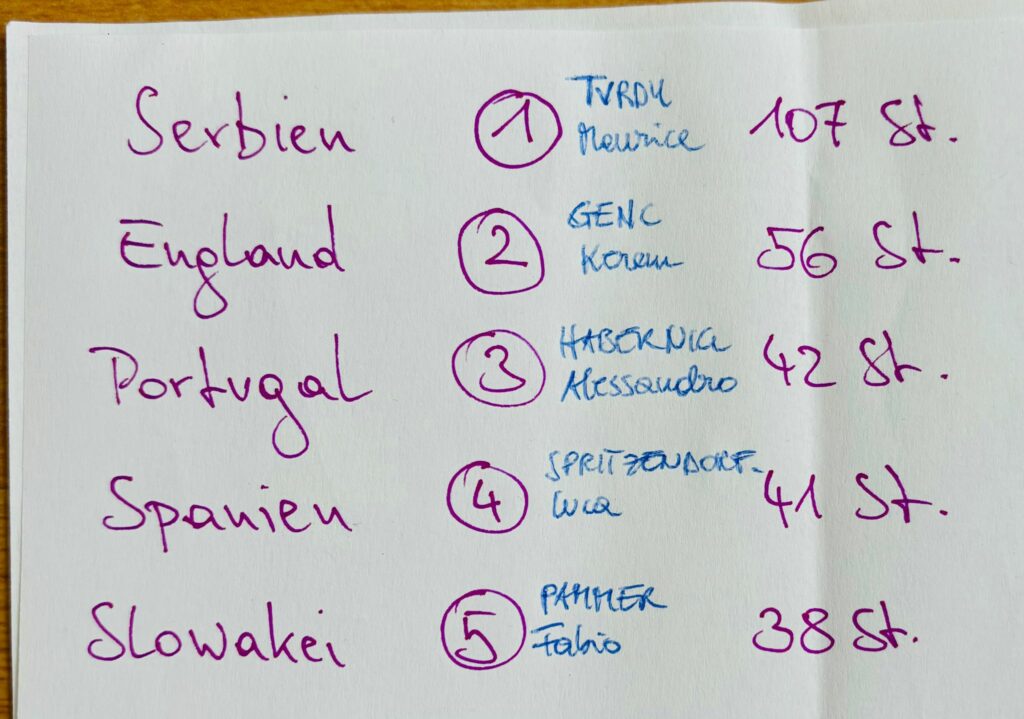 Serbien 1 TVRDY Maurice 107 St.
England 2 GENC Kerem 56 St.
Portugal 3 Alessandro 42 St.
Spanien 4 SPRITZENDORF- Luca 41 St.
Slowakei 5 PAMMER Fabio 38 St.